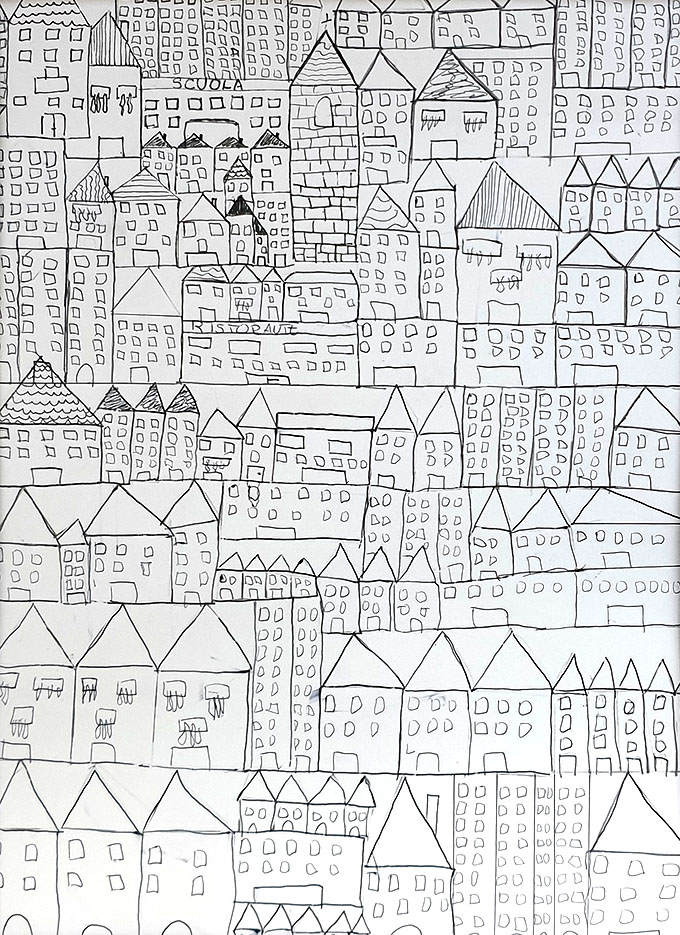 SCUOLA
RISTORANTE